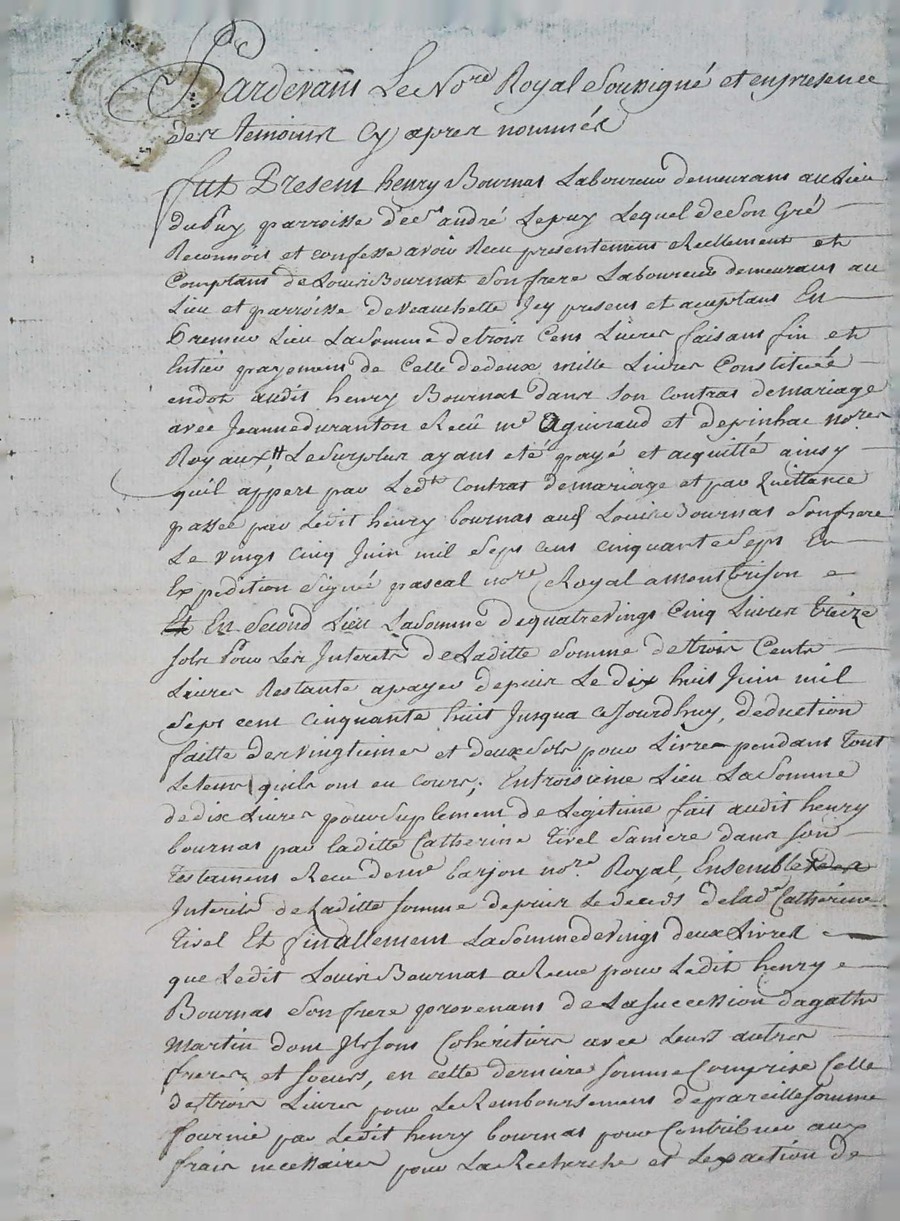 Pardevant Le No.re Royal Soussigné et en presence
des temoins Cy apres nommés
fut Present henry Bournat Laboureur demeurant au Lieu
du Puy parroisse de St andré Lepuy Lequel de Son Gré
Reconnoit et confesse avoir Recu presentement Reellement et
Comptant de Louis Bournat Son frere Laboureur demeurant au
Lieu et parroisse de Veauchette Icy present et aceptant En
Premier Lieu La Somme de trois Cent Livres faisant fin et
Entier payement de Celle de deux mille Livres Constituée
en dot audit henry Bournat dans son contrat de mariage
avec Jeanne duranton Recû me aguiraud et depinhac no.res
Royaux, Le Surplus ayant eté payé et acquitté ainsy
quil appert par Ledt Contrat de mariage et par quittance
passée par Ledit henry bournat aud Louis Bournat Son frere
Le vingt Cinq Juin mil Sept cent cinquante Sept En
Expedition Signé pascal no.re Royal a montbrison
En Second Lieu La Somme de quatre vingt Cinq Livres treize
sols Pour Les Interets de Laditte Somme de trois Cents
Livres Restante a payer depuis Le dix huit Juin mil
Sept cent cinquante huit Jusqua ce Jourdhuy, deduction
faitte des vingtiemes et deux Sols pour Livre pendant tout
Le tems quils ont eu cours; En troisieme Lieu La Somme
de dix Livres pour Suplement de Legitime fait audit henry
bournat par laditte Catherine tivel Sa mere dans son
testament Recu de me barjon no.re Royal, Ensemble
Interets de Laditte Somme depuis Le deceds de lade Catherine
tivel Et finallement La Somme de vingt deux Livres
que Ledit Louis Bournat a Recue pour Ledit henry
Bournat Son frere provenant de La Succession dagathe
Martin dont Ils sont Cohéritiers avec Leurs autres
freres et soeurs, en cette derniere somme Comprise Celle
de trois Livres pour Le Remboursement de pareille somme
fournie par Ledit henry bournat pour Contribuer aux
frais necessaires pour La Recherche et Lexaction de